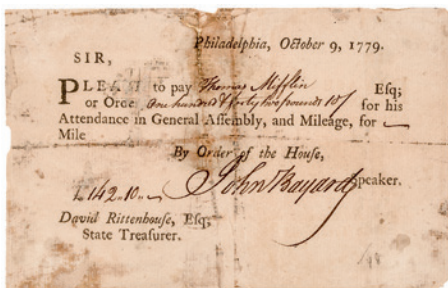 Philadelphia, October 9, 1779.
SIR,
PLEASE to pay Thomas Mifflin Esq;
or Orde one hundred & forty two pounds 10/ for his
Attendance in General Assembly, and Mileage, for
Mile
By Order of the House,
John Bayard Speaker.
£142.10.
David Rittenhouse, Esq;
State Treasurer.